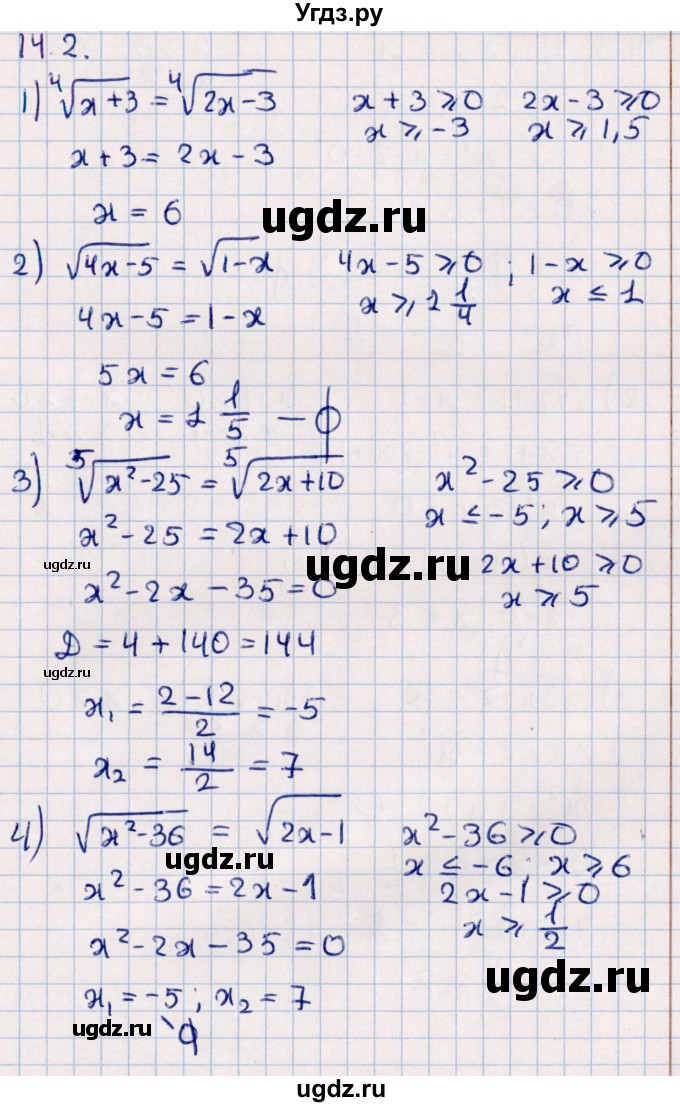 Угдз.ру
14.2.
1) ⁴√(x+3) = ⁴√(2x-3)   x+3 ⩾ 0   2x-3 ⩾ 0
x ⩾ -3   x ⩾ 1,5
x+3 = 2x-3
x = 6
ugdz.ru
2) √(4x-5) = √(1-x)   4x-5 ⩾ 0 ; 1-x ⩾ 0
x ⩾ 1 1/4   x ≤ 1
4x-5 = 1-x
5x = 6
x = 1 1/5 — ϕ
3) ⁵√(x²-25) = ⁵√(2x+10)   x²-25 ⩾ 0
x ≤ -5 ; x ⩾ 5
x²-25 = 2x+10
ugdz.ru
ugdz.ru
2x+10 ⩾ 0
x ⩾ 5
x²-2x-35=0
D = 4+140=144
ugdz.ru
x₁ = (2-12)/2 = -5
x₂ = 14/2 = 7
4) √(x²-36) = √(2x-1)   x²-36 ⩾ 0
ugdz.ru
x ≤ -6; x ⩾ 6
x²-36 = 2x-1   2x-1 ⩾ 0
x ⩾ 1/2
x²-2x-35=0
ugdz.ru
x₁ = -5 ; x₂ = 7
ugdz.ru
ϕ
ugdz.ru